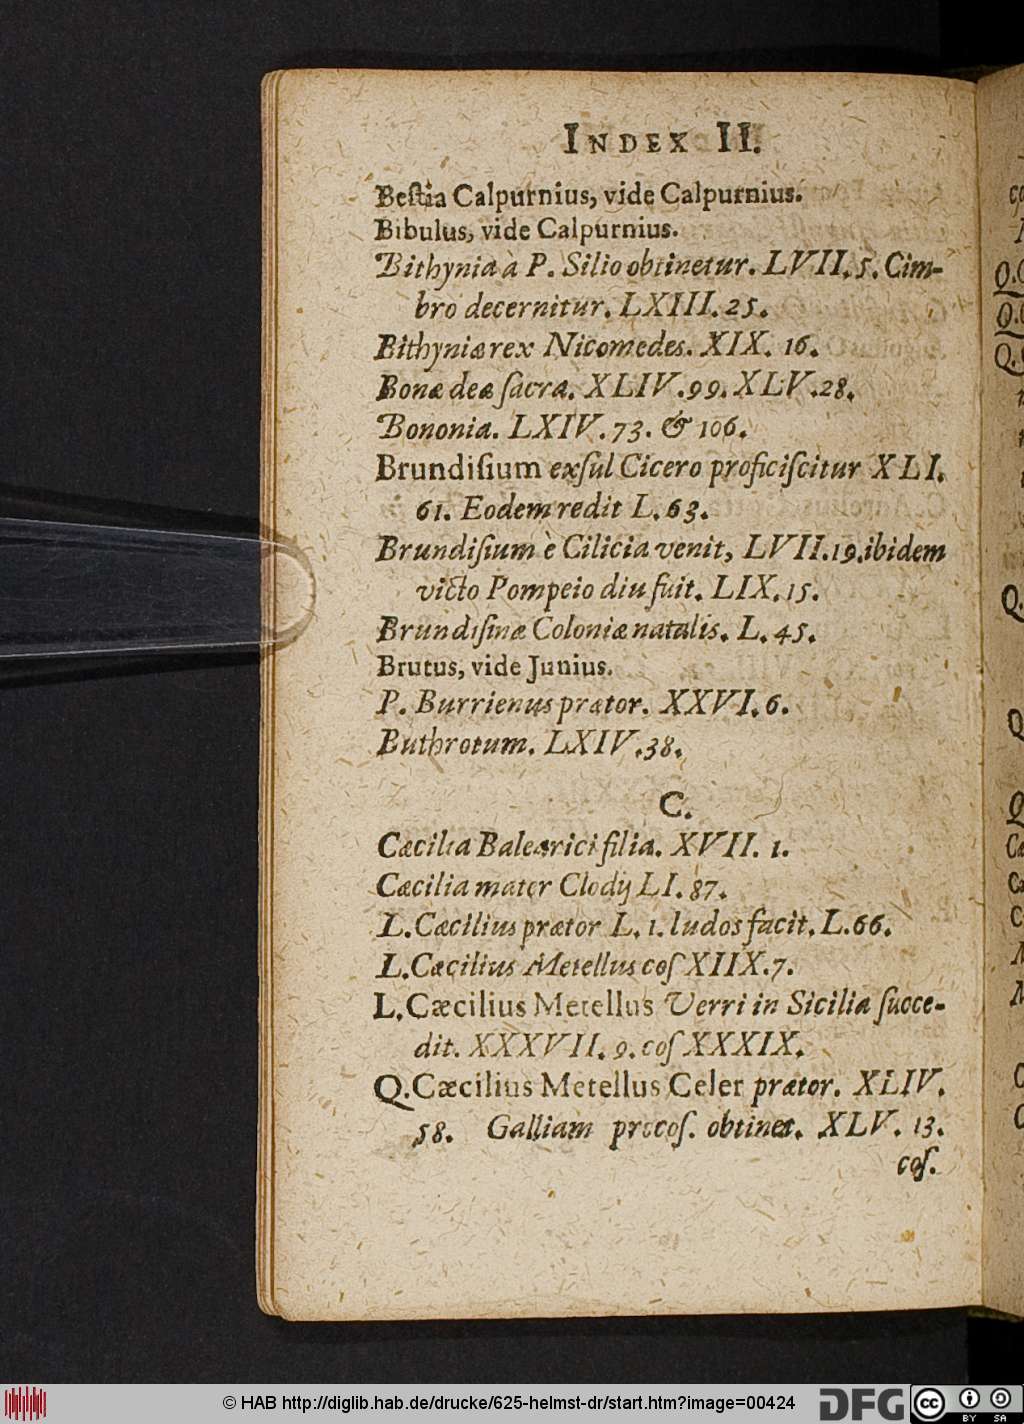 INDEX II.
Beſtia Calpurnius, vide Calpurnius.
Bibulus, vide Calpurnius.
Bithynia à P. Silio obtinetur. LVII. 5. Cim-
bro decernitur. LXIII. 25.
Bithyniæ rex Nicomedes. XIX. 16.
Bonæ deæ ſacra. XLIV. 99. XLV. 28.
Bononia. LXIV. 73. & 106.
Brundiſium exſul Cicero proficiſcitur XLI.
61. Eodem redit L. 63.
Brundiſium è Cilicia venit, LVII. 19. ibidem
victo Pompeio diu fuit. LIX. 15.
Brundiſinæ Coloniæ natalis. L. 45.
Brutus, vide Junius.
P. Burrienus prætor. XXVI. 6.
Buthrotum. LXIV. 38.
C.
Cæcilia Balearici filia. XVII. 1.
Cæcilia mater Clodij LI. 87.
L. Cæcilius prætor L. 1. ludos facit. L. 66.
L. Cæcilius Metellus coſ XIIX. 7.
L. Cæcilius Metellus Verri in Sicilia ſucce-
dit. XXXVII. 9. coſ XXXIX.
Q. Cæcilius Metellus Celer prætor. XLIV.
58. Galliam procoſ. obtinet. XLV. 13.
coſ.
© HAB http://diglib.hab.de/drucke/625-helmst-dr/start.htm?image=00424
DFG
cc
BY SA